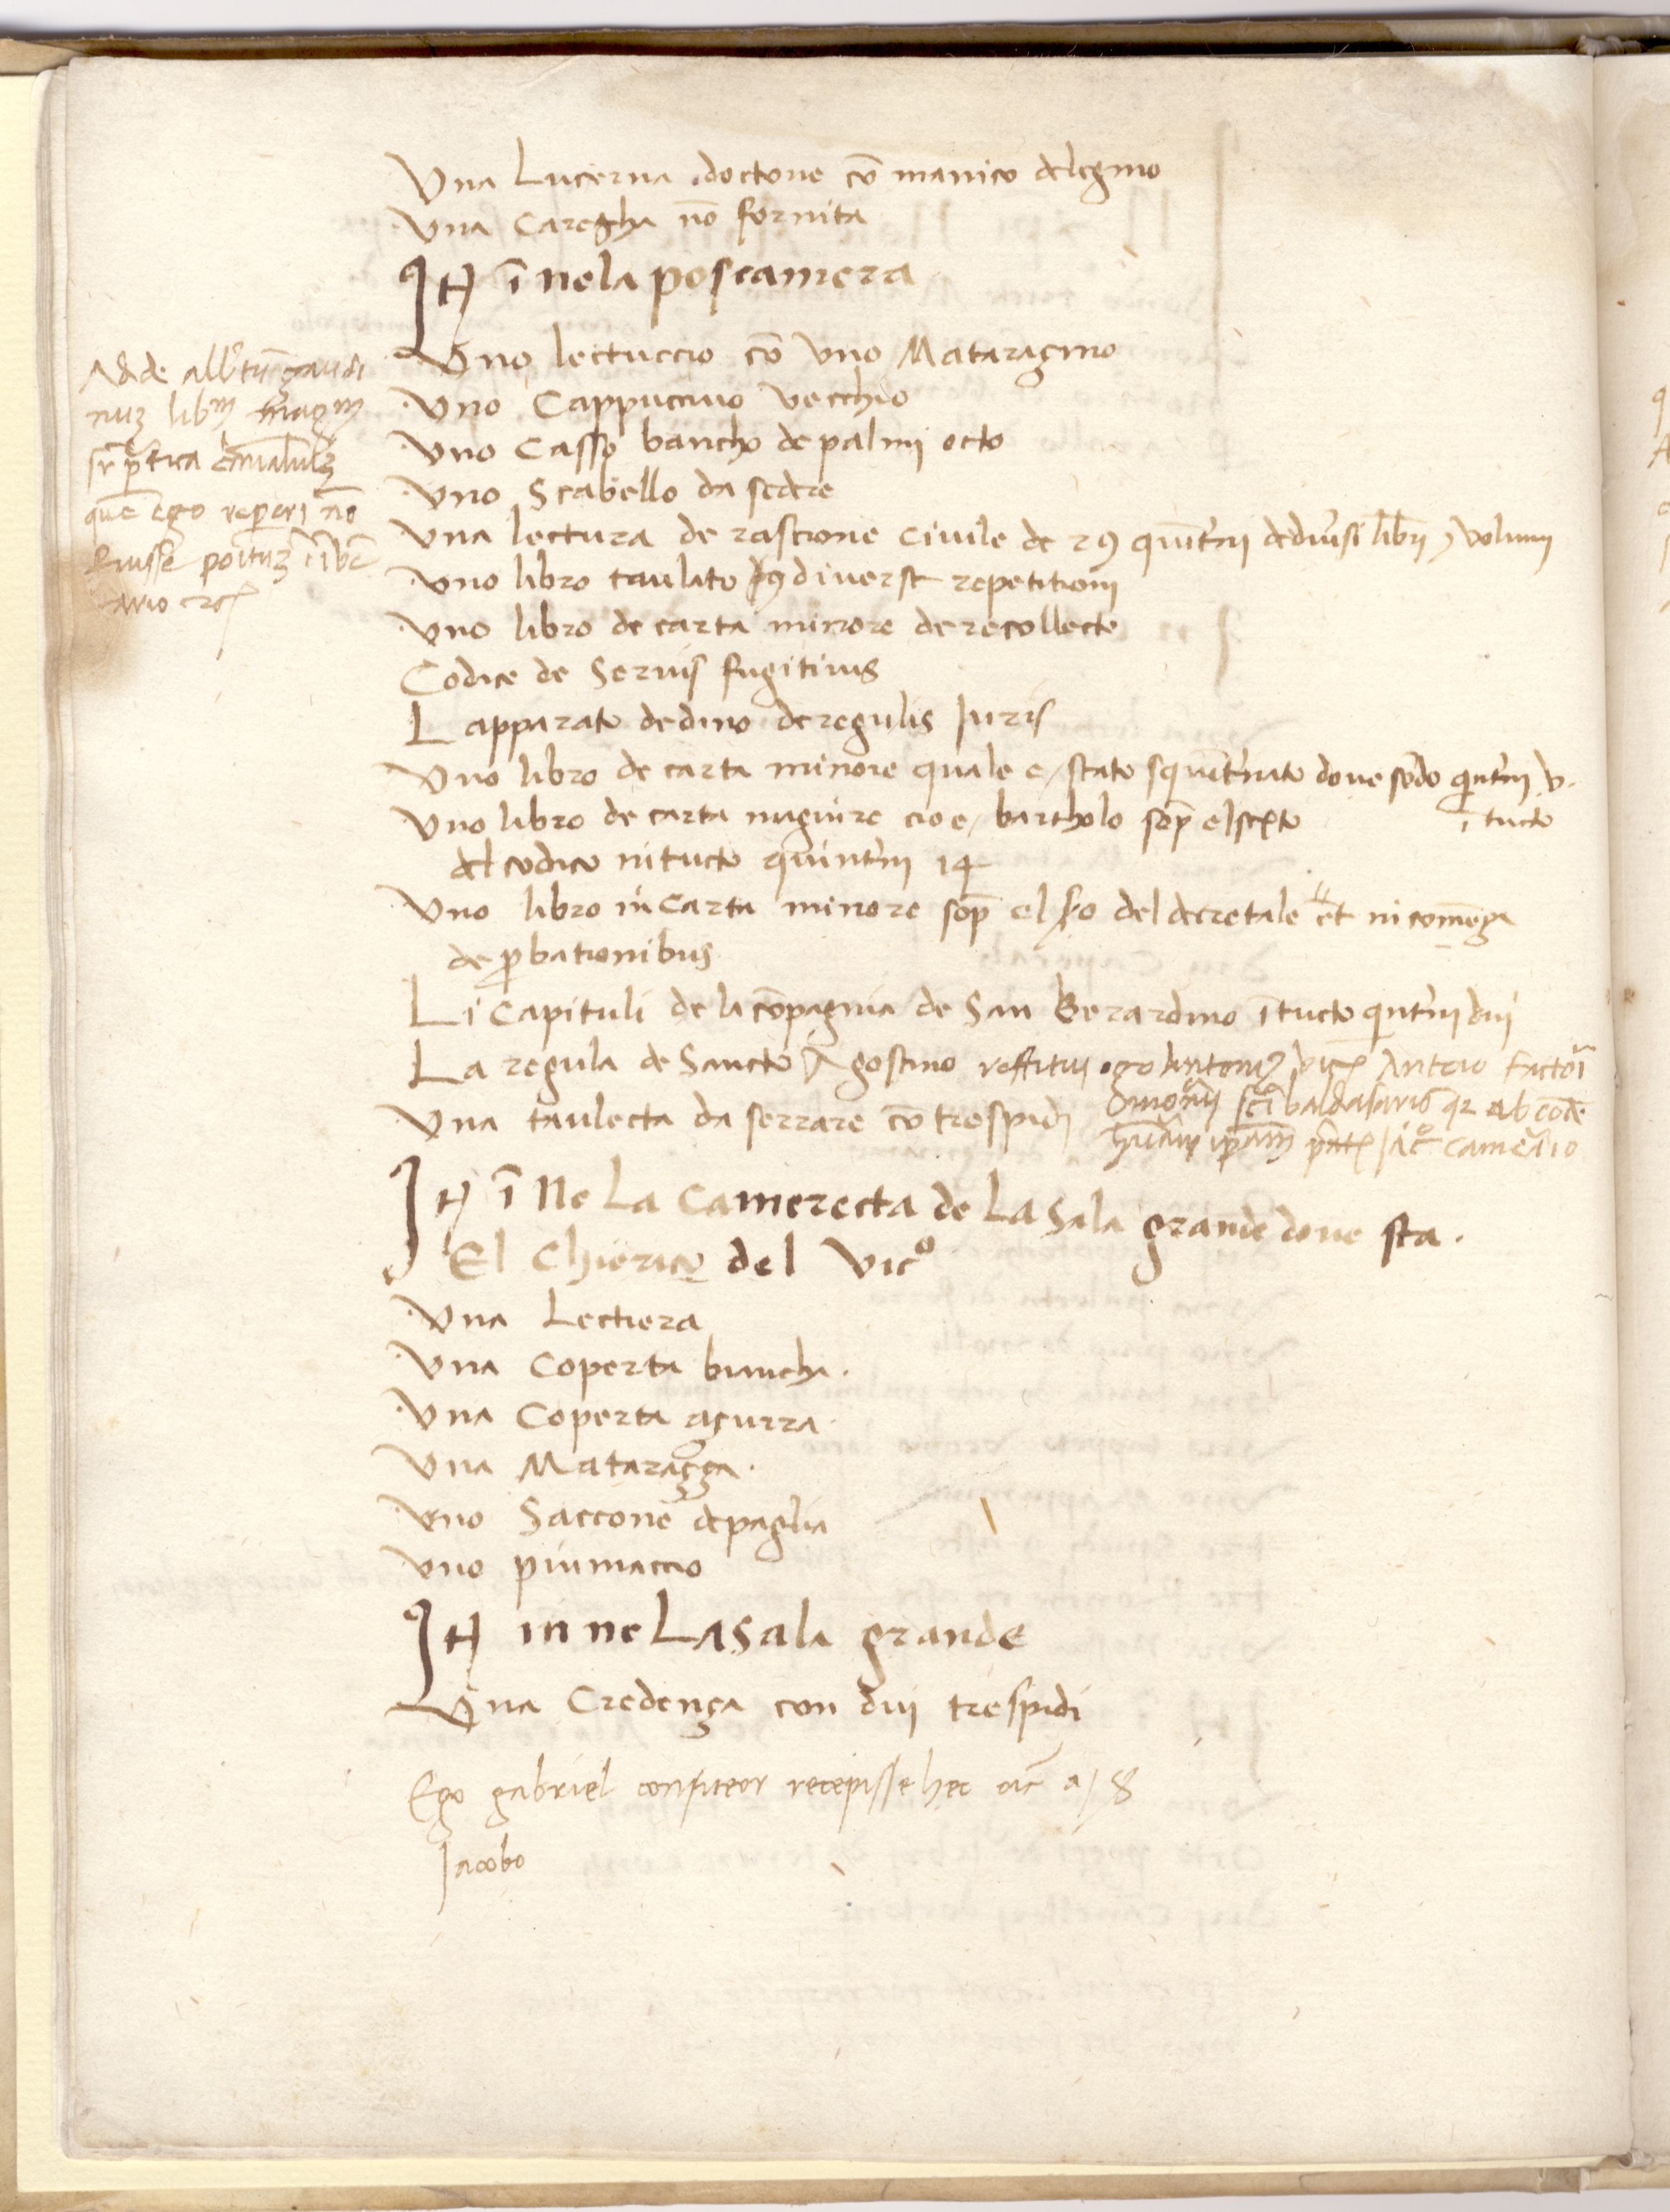 Una Lucerna doctone cō manico delegnio
Una Caregha nō fornita
It ī nela poscamera
Uno lectuccio cō uno Mataragino
Uno Cappuccino vecchio
Uno Casso bancho de palmi octo
Uno Scabello da sedere
Una lectura de rascione civile de 29 quīt'ni de diu'si libri volumi
Uno libro taulato diverse repetitioni
Uno libro de carta minore de recollecte
Codice de Servis fugitivis
L apparato de dino de regulis Juris
Uno libro de carta minore quale e stato squīt'nato dove sōdo qīnt'ni v.
ī tucto
Uno libro de carta magiure cioe bartholo sop̄ el sexto
del codico in tucto quint'ni 14
Uno libro in carta minore sop̄ el del decretale et in comēça
de ꝓbationibus
Li Capituli de la cōpagnia de San Berardino ī tucto qīnt'ni dui
La regula de Sancto Agostino
Una taulecta da serrare cō trespidi
It ī Ne La Camerecta de La Sala grande dove sta.
El Chierico del Vicº
Una Lectiera
Una Coperta biancha.
Una Coperta açurra.
Una Mataraçça.
Uno Saccone de paglia
Uno piumaccio
It in ne La Sala grande
Una Credença con dui trespidi
Ego gabriel confiteor recepisse hec
Jacobo
Adde
quē ego reperi nō